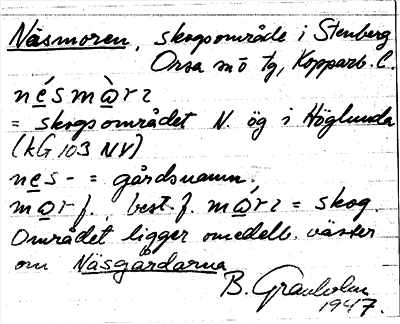 Näsmoren, skogsområde i Stenberg
Orsa m ö tg, Kopparb. l.
nésmòrɛ
= skogsområdet N. ög i Höglunda
(KG 103 NV)
nes- = gårdsnamn.
mor f. best. f. mórɛ = skog.
Området ligger omedelb. väster
om Näsgårdarna
B. Granholm
1947.